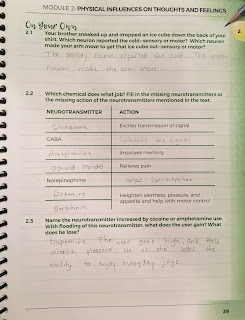 MODULE 2: PHYSICAL INFLUENCES ON THOUGHTS AND FEELINGS
2
On Your Own
2.1 Your brother sneaked up and dropped an ice cube down the back of your
shirt. Which neuron reported the cold–sensory or motor? Which neuron
made your arm move to get that ice cube out–sensory or motor?
The sensory neuron reported the cold. The motor
neuron made the arm move.
2.2 Which chemical does what job? Fill in the missing neurotransmitters or
the missing action of the neurotransmitters mentioned in the text.
NEUROTRANSMITTER ACTION
Glutamate Excites transmission of signal
GABA Inhibits the signal
Acetylcholine Improves memory
Opioid Peptides Relieves pain
Norepinephrine Helps concentration
Dopamine Heightens alertness, pleasure, and
appetite and help with motor control
Serotonin
2.3 Name the neurotransmitter increased by cocaine or amphetamine use.
With flooding of this neurotransmitter, what does the user gain? What
does he lose?
Dopamine The user gains high, and
intense pleasure. He or she loses the
ability to enjoy everyday joys.
39